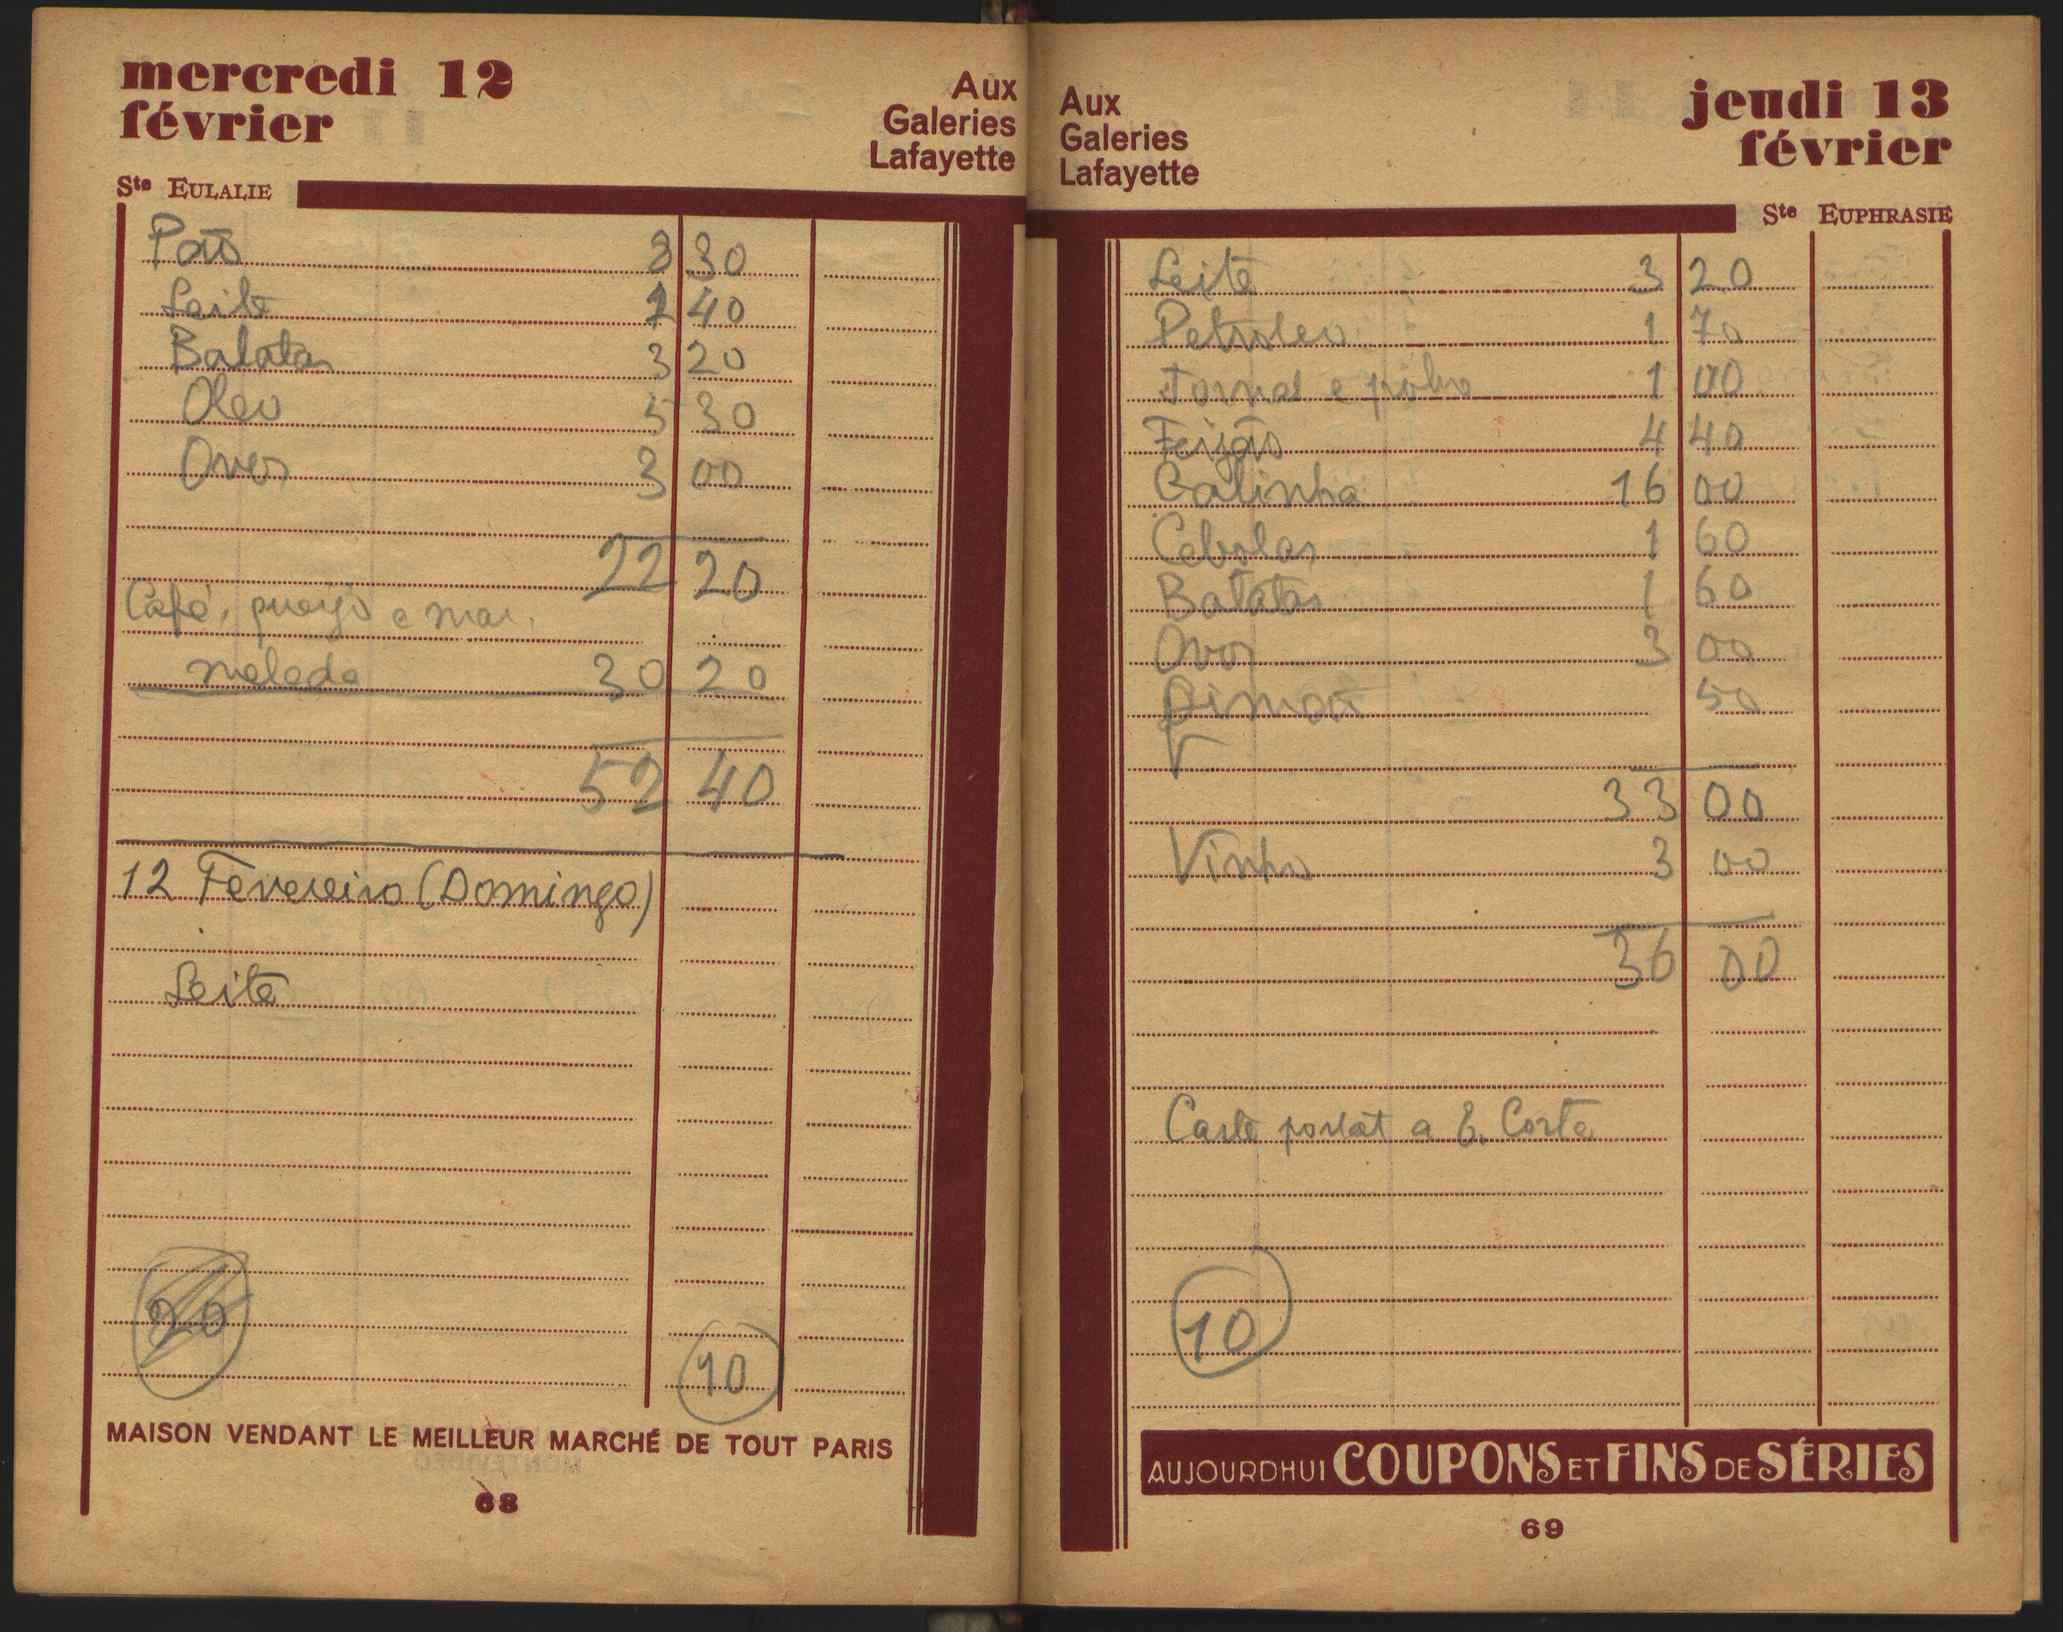 mercredi 12
février
Aux
Galeries
Lafayette
Ste EULALIE
Pão 8 30
Leite 2 40
Batatas 3 20
Oleo 5 30
Ovos 3 00
22 20
Café, queijo e mar.
melada 30 20
52 40
12 Fevereiro (Domingo)
Leite
20
10
MAISON VENDANT LE MEILLEUR MARCHÉ DE TOUT PARIS
68
Aux
Galeries
Lafayette
jeudi 13
février
Ste EUPHRASIE
Leite 3 20
Petroleo 1 70
Jornal e 1 00
Feijão 4 40
Galinha 16 00
Cebolas 1 60
Batatas 1 60
Ovos 3 00
50
33 00
Vinho 3 00
36 00
postal a E. Corte
10
AUJOURDHUI COUPONS ET FINS DE SÉRIES
69